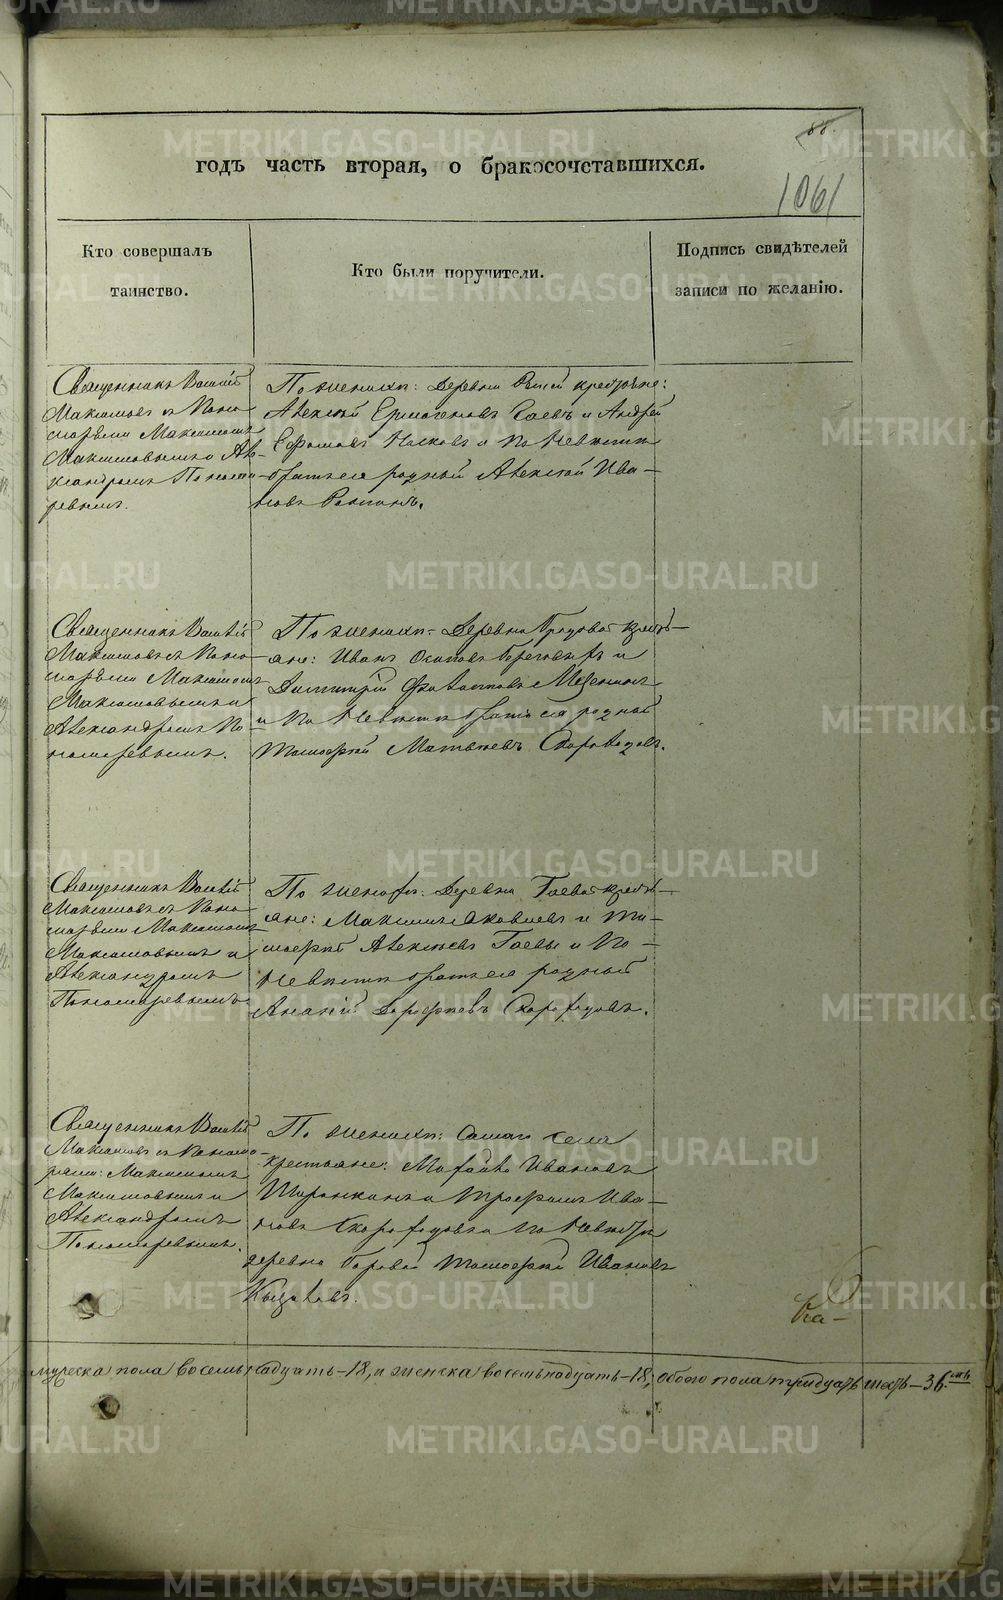 годъ часть вторая, о бракосочетавшихся.
1061
Кто совершалъ
таинство.
Кто были поручители.
Подпись свидѣтелей
записи по желанію.
Священникъ Василій
Максимовъ съ Поно
марями Максимомъ
Максимовымъ и Але
ксандромъ Понома
ревымъ.
По женихѣ: деревни крестьяне:
Алексѣй Ермогеновъ Гаевъ и Андрей
Носковъ и по невѣстѣ
братъ ея родный Алексѣй Ива
новъ
Священникъ Василій
Максимовъ съ Поно
марями Максимомъ
Максимовымъ и
Александромъ По
номаревымъ.
По женихѣ: деревни Бродовой крестья
не: Иванъ Осиповъ и
Димитрій
и по невѣстѣ братъ ея родный
Тимофей Матвѣевъ Скороходовъ.
Священникъ Василій
Максимовъ съ Поно
марями Максимомъ
Максимовымъ и
Александромъ
Пономаревымъ
По женихѣ: деревни Гаевой крестья
не: Максимъ Яковлевъ и Ти
мофей Алексѣевъ Гаевы и по
невѣстѣ братъ ея родный
Ананій Дорофеевъ Скороходовъ.
Священникъ Василій
Максимовъ съ Понома
рями: Максимомъ
Максимовымъ и
Александромъ
Пономаревымъ.
По женихѣ: Самаго села
крестьяне: Ивановъ
и Трофимъ Ива
новъ Скороходовъ и по невѣстѣ
деревни Боровой Тимофей Ивановъ
мужеска пола восемьнадцать-18, и женска восемьнадцать-18, обоего пола тридцать шесть-36.
METRIKI.GASO-URAL.RU